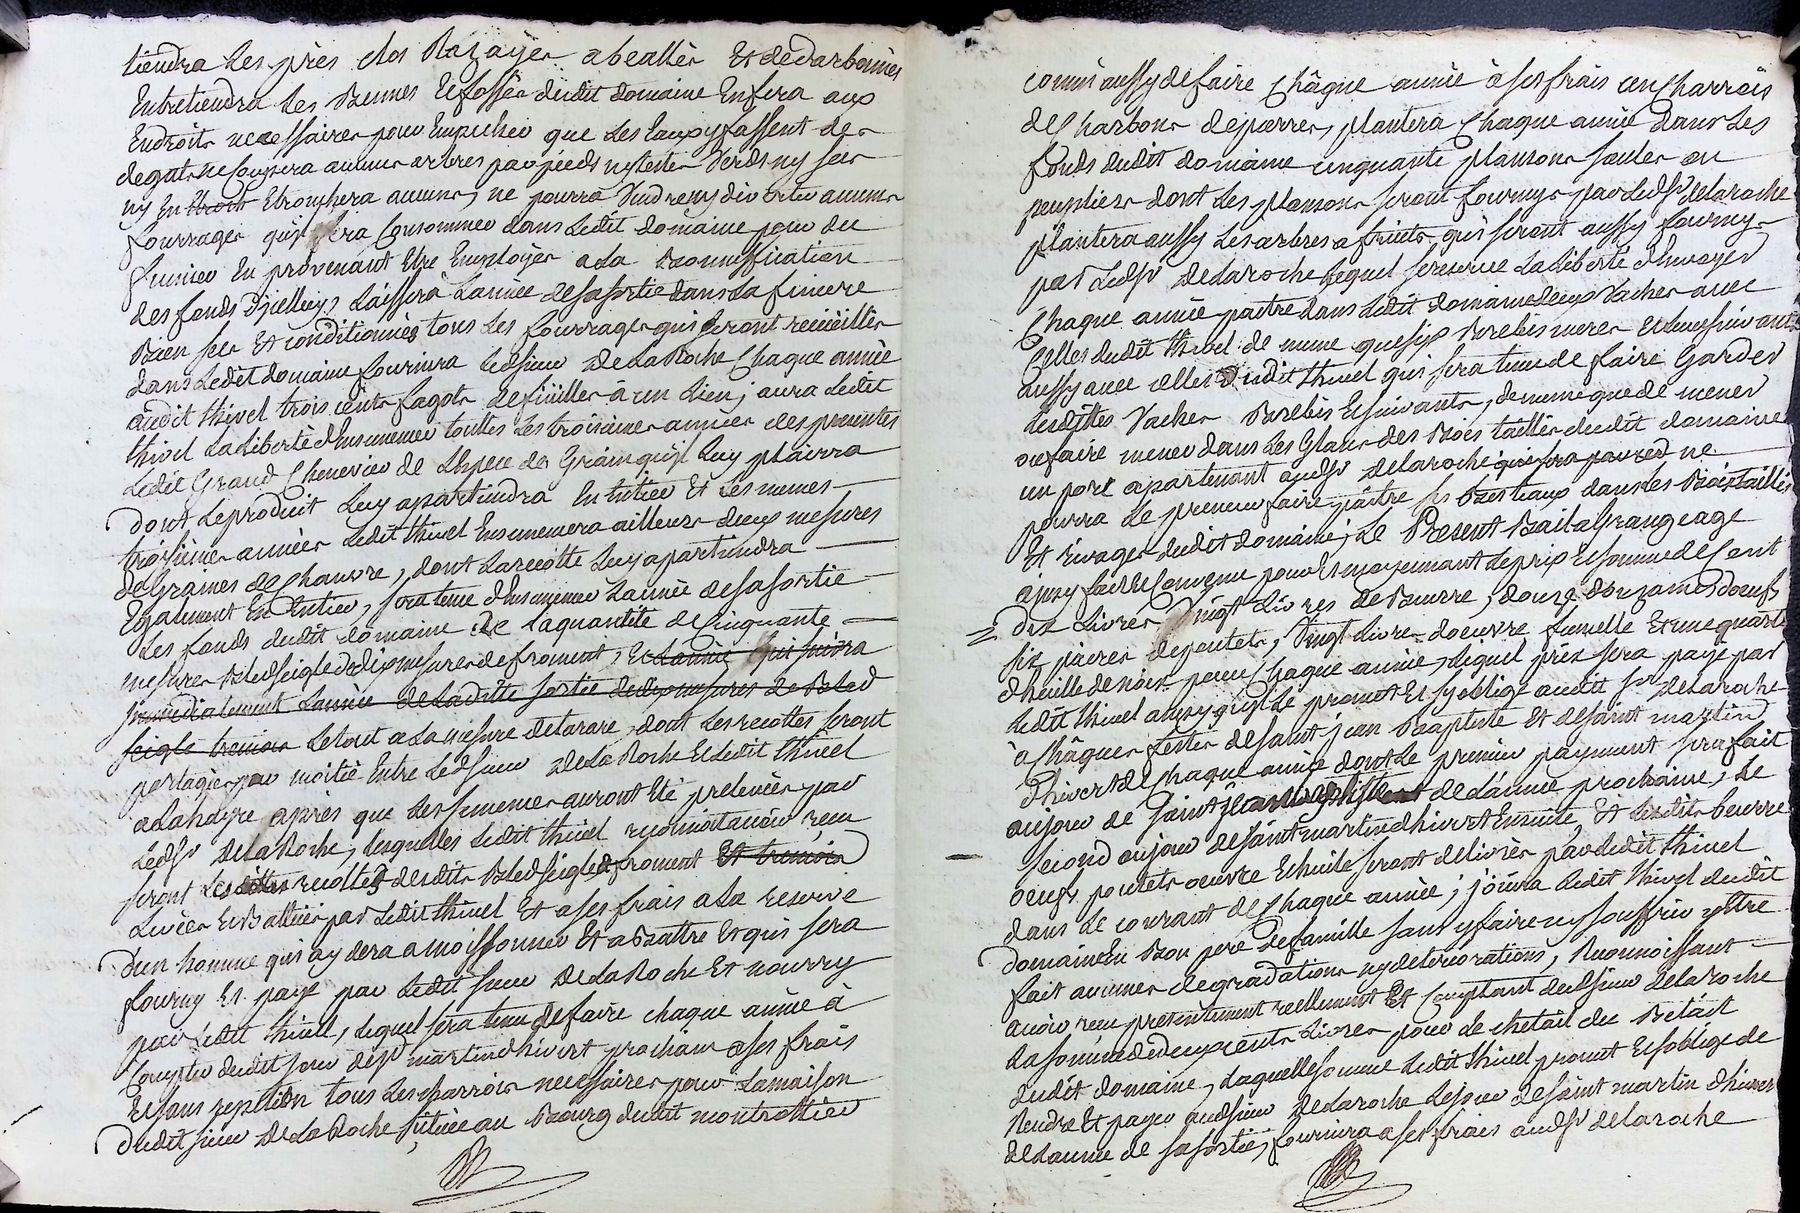 tiendra les près clos Razayér abeallér Et dedarbonnès
Entretiendra les Bennes Et fossér dudit domaine Enfera aux
Endroits necessairer pour Empecher que les Eaux y fassent der
degats ne Coupera aucuns arbres par pieds ny tester Verds ny secs
ny En Etronchera aucuns, ne pourra Vendre ny divertir aucuns
fourrager qu'il fera Consommer dans Ledit domaine pour du
fumier En provenant Etre Employér a la Bonnification
des fonds d'jcelluy, Laissera Lannée desasortie dans La feniere
Bien secs Et conditionnès tous Les fourrager qui seront recüeillir
dans Ledit domaine fournira Ledsieur De La Roche Chaque année
audit thivel trois cents fagots defeüiller à un Lien; aura Ledit
thivel La liberté d'Ensemencer touttes Les troisiemes années des presentes
Ledit Grand Chenevier de Lespece de Grain qu'il Luy plaierra
dont Leproduit Luy apartiendra En Entier Et Les memes
troisiemes années Ledit thivel Ensemencera ailleurs deux mesures
de Graines de Chanvre, dont Larecotte Luy apartiendra
Egalement En Entier, sera tenu d'Ensemencer Lannée desasortie
Les fonds dudit domaine De Laquantité de Cinquante
mesures Bled seigle Et dedix mesures de froment, Et Lannée qui suivra
jmmediatement Lannée de Ladite sortie dedix mesures de Bled
seigle tremois Letout a La mesure delarare, dont Les recottes seront
partagées par moitié Entre Ledsieur De La Roche Et Ledit thivel
a Lahdyre après que Les semences auront Eté prelevées par
Ledsr De La Roche, lesquelles Ledit thivel reconnoit avoir reçu
seront Lesdittes recoltes desdits Bled seigle Et froment Et tremois
Livées Et Battües par Ledit thivel Et a ses frais a La reserve
Dun homme qui aydera a moissonner Et a Battre Et qui sera
fourny Et payé par Ledit sieur De La Roche Et nourry
par Ledit thivel, Lequel sera tenu defaire chaque année à
Compter dudit jour de st martin d'hivert prochain a ses frais
Et sans repetition tous Les charrois necessaires pour Lamaison
Dudit sieur De La Roche situeé au Bourg dudit montrottier
comme aussy defaire Châque année à ses frais un Charrois
de Charbons depierres, plantera Chaque année dans Les
fonds dudit domaine cinquante plansons saules ou
peupliers dont Les plansons seront fournys par Ledsr delaroche
plantera aussy Les arbres a fruits, qui seront aussy fournys
par Ledsr Delaroche Lequel sereserve La Liberté d'Envoyer
Chaque année paître dans Ledit domaine deux Vaches avec
Celles dudit thivel de meme que six Brebis meres Et leurs suivants
aussy avec celles Dudit thivel qui sera tenu de faire Garder
lesdittes Vaches Brebis Et suivants, de meme que de mener
ou faire mener dans Les Glans des Bois taillis dudit domaine
un porc apartenant audsr Delaroche qui sera par ced ne
pourra Le preneur faire paître ses Bestiaux dans Les Bois taillis
Et rivages dudit domaine; Le Present Bail a Grangeage
ainsy fait Et Convenu pour Et moyennant Leprix Et somme de Cent
dix Livres Vingt Livres de Beurre, douze douzaines d'oeufs
six paires depoulets, Vingt Livres d'oeuvre femelle Et une quarte
d'huille de noix pour Chaque année, Lequel prix sera payé par
Ledit thivel ainsy qu'il Le promet Et s'y oblige audit sr Delaroche
à Châques festes desaint jean Baptiste Et desaint martin
d'hivert de Chaque année dont Le premier payement sera fait
au jour de saint jean baptiste de Lannée prochaine, Le
second au jour desaint martin d'hivert Ensuite, Et Lesdits beurre
oeufs poulets oeuvre Et huile seront delivrés par Ledit thivel
dans Le courant de Chaque année; joüira Ledit thivel dudit
domaine En Bon pere defamille sans y faire ny souffrir Etre
fait aucunes degradations ny deteriorations, Reconnoissant
avoir reçu presentement reellement Et Comptant dudsieur delaroche
La somme de deux cents Livres pour Le cheteil du Betail
dudit domaine, Laquelle somme Ledit thivel promet Et soblige de
Rendre Et payer audsieur Delaroche Lejour desaint martin d'hivert
De Lannée de sasortie, fournira a ses frais audsr delaroche